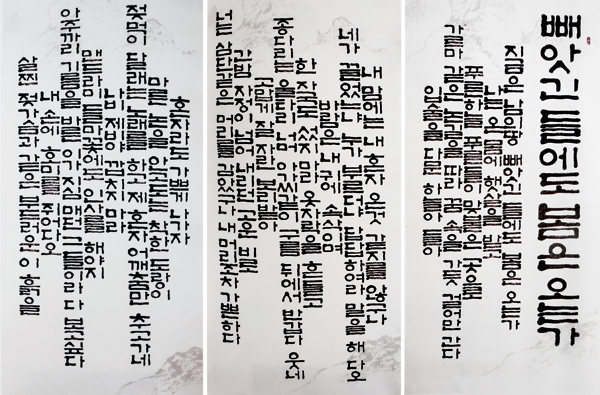 빼앗긴 들에도 봄은 오는가
지금은 남의 땅 빼앗긴 들에도 봄은 오는가
나는 온 몸에 햇살을 받고
푸른 하늘 푸른 들이 맞붙은 곳으로
가르마 같은 논길을 따라 꿈 속을 가듯 걸어만 간다
입술을 다문 하늘아 들아
내 맘에는 내 혼자 온 것 같지를 않구나
네가 끌었느냐 누가 부르더냐 답답하여라 말을 해 다오
바람은 내 귀에 속삭이며
한 자욱도 섰지 마라 옷자락을 흔들고
종다리는 울타리 너머 아씨같이 구름 뒤에서 반갑다 웃네
고맙게 잘 자란 보리밭아
간밤 자정이 넘어 내리던 고운 비로
너는 삼단 같은 머리를 감았구나 내 머리조차 가뿐하다
혼자라도 가쁘게 나가자
마른 논을 안고 도는 착한 도랑이
젖먹이 달래는 노래를 하고 제 혼자 어깨춤만 추고 가네
나비 제비야 깝치지 마라
맨드라미 들마꽃에도 인사를 해야지
아주까리 기름을 바른 이가 지심 매던 그 들이라 다 보고 싶다
내 손에 호미를 쥐어다오
살찐 젖가슴과 같은 부드러운 이 흙을